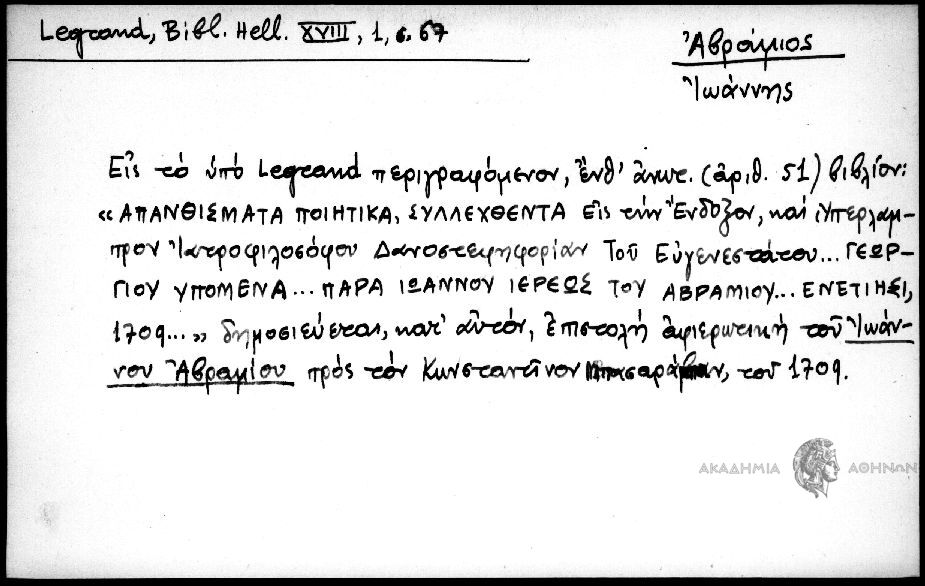 Legrand, Bibl. Hell. XVIII, 1, σ. 67
Ἀβράμιος
Ἰωάννης
Εἰς τὸ ὑπό Legrand περιγραφόμενον, ἔνθ' ἄνωτ. (ἀριθ. 51) βιβλίον:
« ΑΠΑΝΘΙΣΜΑΤΑ ΠΟΙΗΤΙΚΑ, ΣΥΛΛΕΧΘΕΝΤΑ Εἰς τὴν Ἔνδοξον, καὶ Ὑπερλαμ-
προν Ἰατροφιλοσόφου Δαφοστεφηφορίαν Τοῦ Εὐγενεστάτου... ΓΕΩΡ-
ΓΙΟΥ ΥΠΟΜΕΝΑ... ΠΑΡΑ ΙΩΑΝΝΟΥ ΙΕΡΕΩΣ ΤΟΥ ΑΒΡΑΜΙΟΥ... ΕΝΕΤΙΗΣΙ,
1709... » δημοσιεύεται, κατ' αὐτόν, ἐπιστολή ἀφιερωτική τοῦ Ἰωάν-
νου Ἀβραμίου πρός τόν Κωνσταντῖνον Μπασαράμπαν, τοῦ 1709.
ΑΚΑΔΗΜΙΑ ΑΘΗΝΩΝ